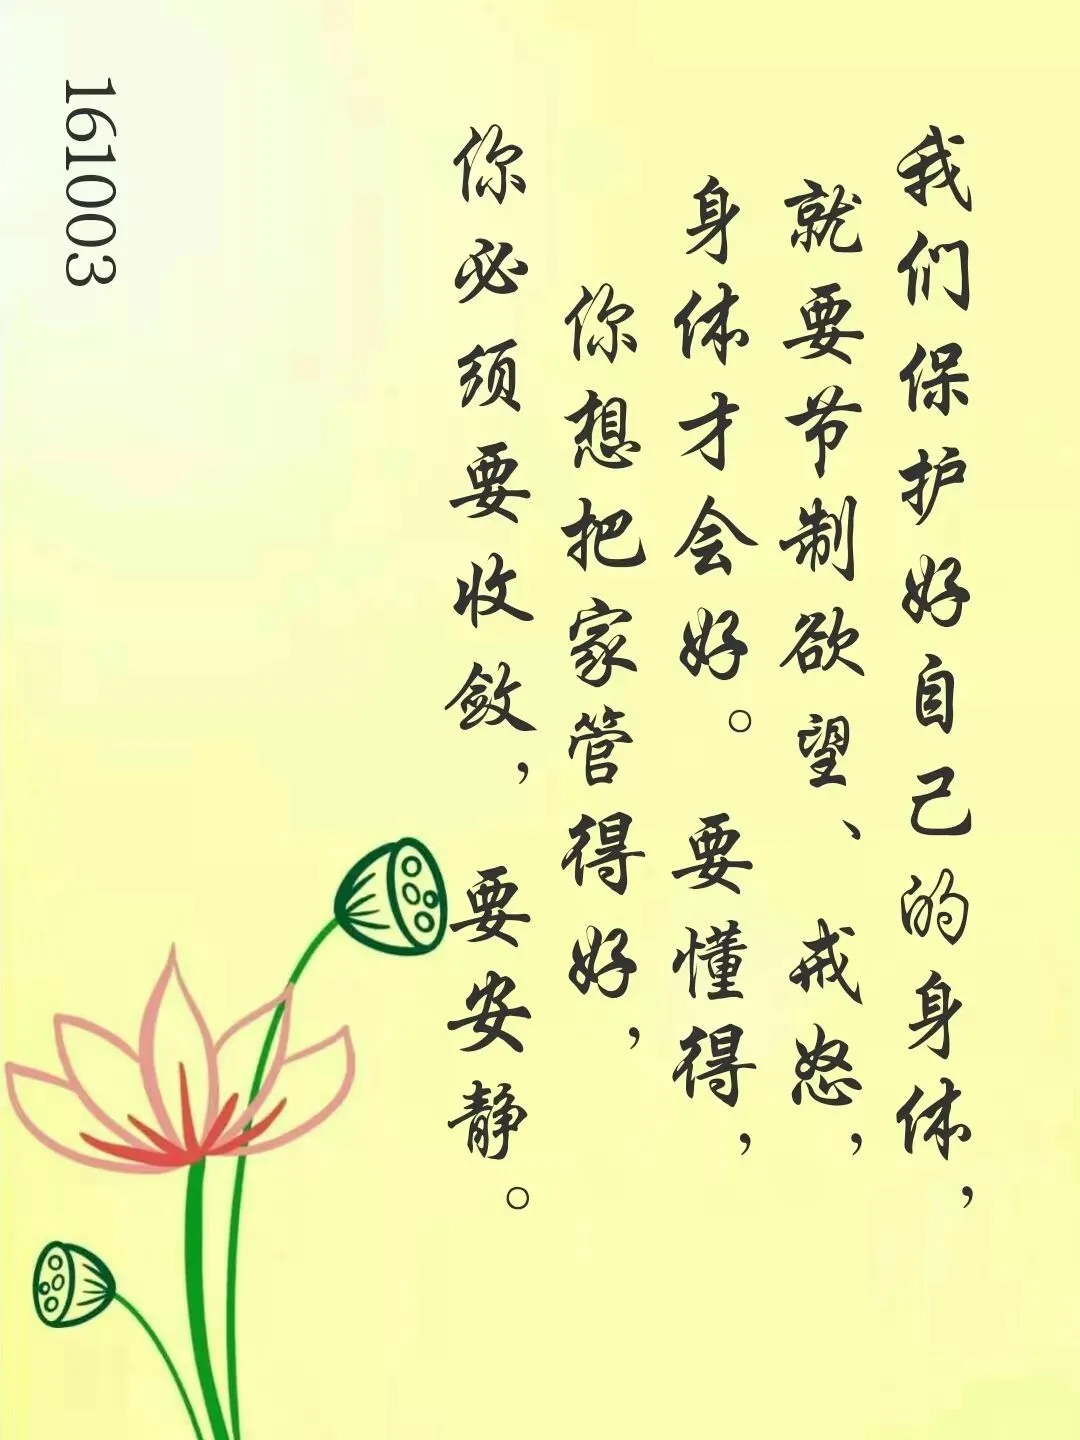 我们保护好自己的身体，
就要节制欲望、戒怒，
身体才会好。要懂得，
你想把家管得好，
你必须要收敛，要安静。
161003